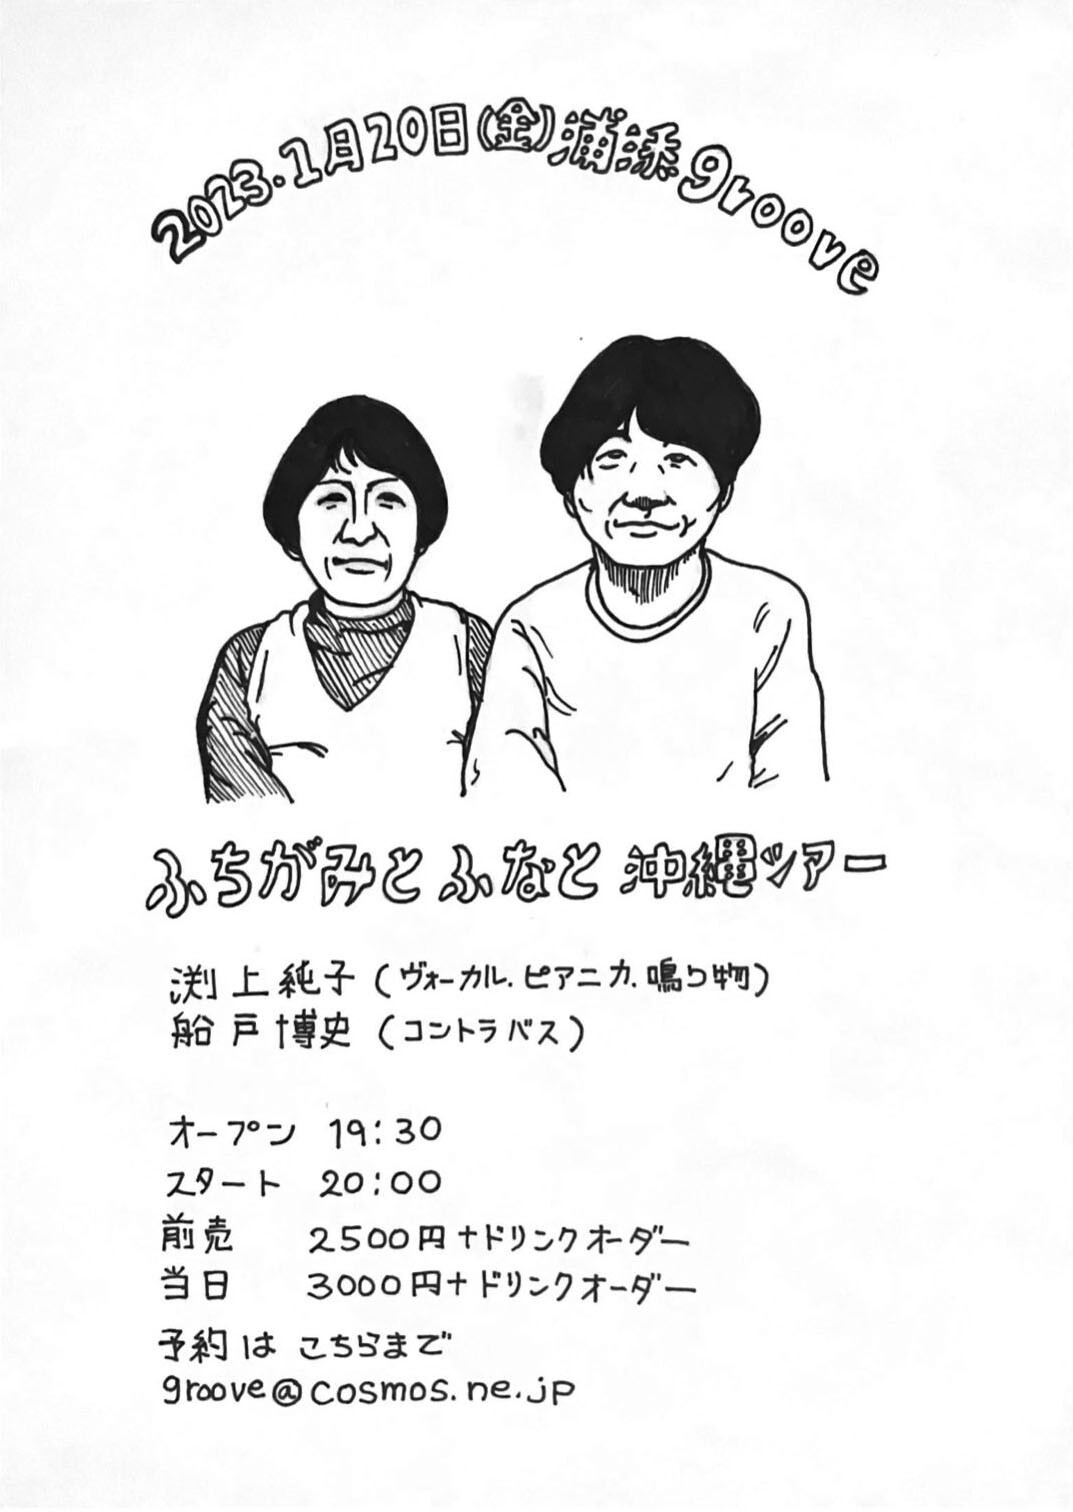 2023.1月20日(金)浦添groove
ふちがみとふなと 沖縄ツアー
渕上純子(ヴォーカル.ピアニカ.鳴り物)
船戸博史(コントラバス)
オープン 19:30
スタート 20:00
前売 2500円+ドリンクオーダー
当日 3000円+ドリンクオーダー
予約は こちらまで
groove@cosmos.ne.jp